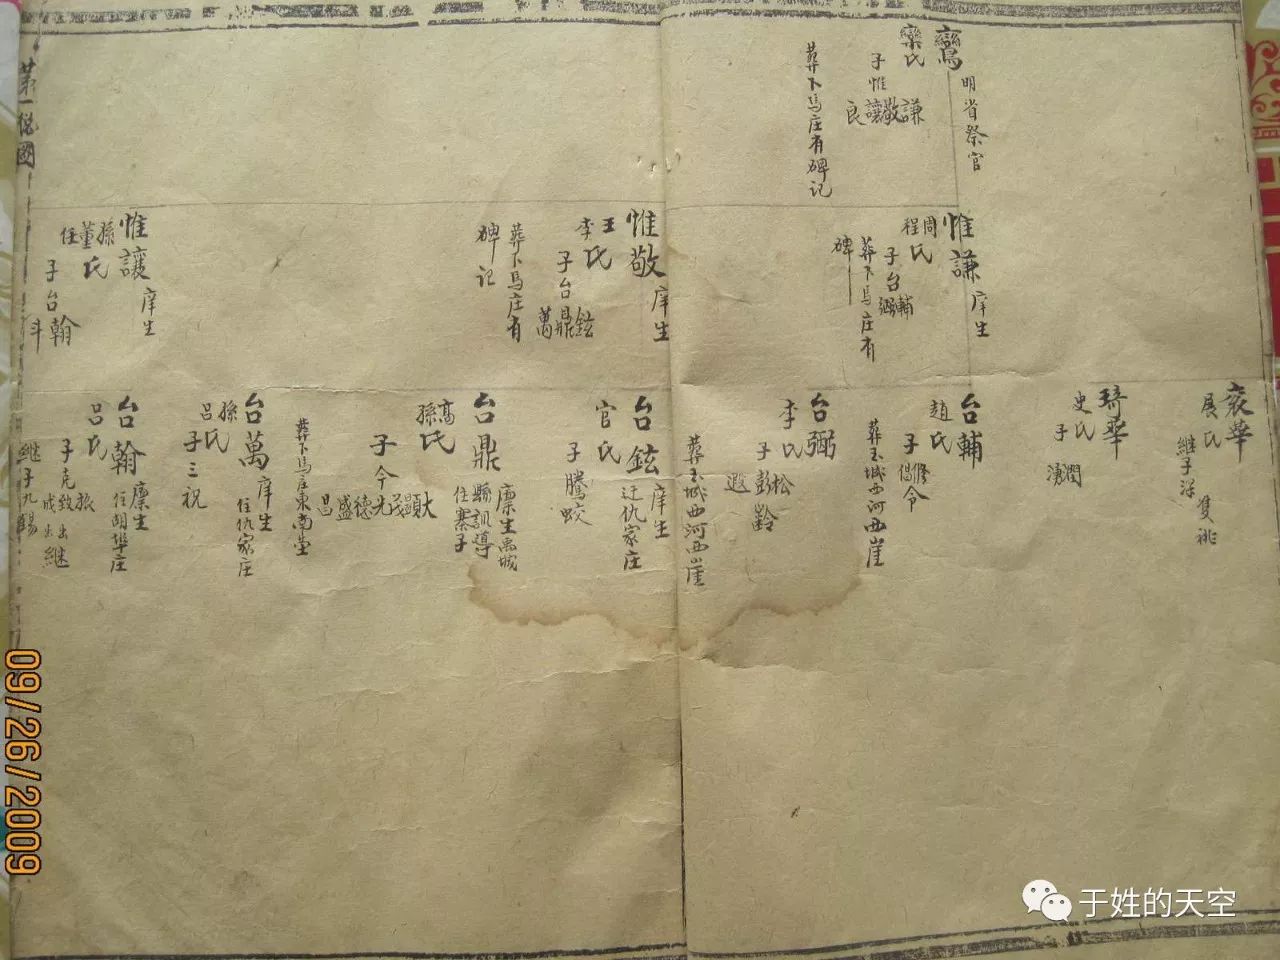 鸞
明省祭官
欒氏
子惟謙敬讓良
葬下馬庄有碑记
惟謙
庠生
周程氏
子台輔弼
葬下馬庄有
碑
惟敬
庠生
王李氏
子台鉉鼎萬
葬下馬庄有
碑记
惟讓
庠生
孫董任氏
子台翰斗
袞華
展氏
继子洋
隻祧
琦華
史氏
子潤湧
台輔
趙氏
子修令
葬玉城西河西崖
台弼
李氏
子松彭齡遐
葬玉城西河西崖
台鉉
庠生
迁仇家庄
官氏
子騰蛟
台鼎
廪生禹城
縣訓導
住寨子
高孫氏
子今
光德盛昌
葬下馬庄東南塋
台萬
庠生
住仇家庄
孫吕氏
子三祝
台翰
廪生
住胡埠庄
吕氏
子克
旅
致出
成出継
継子九錫
09/26/2009
于姓的天空